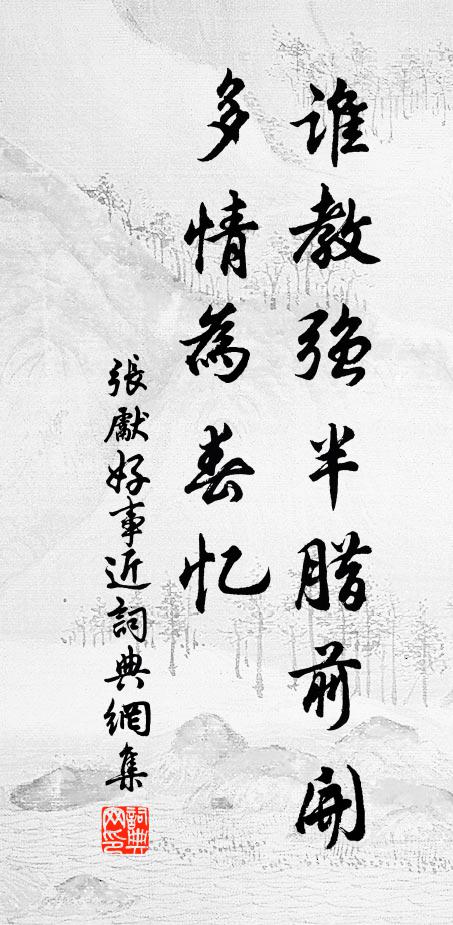 谁教强半腊前開
多情為春忆
張獻好事近詞典網集
詞典網印